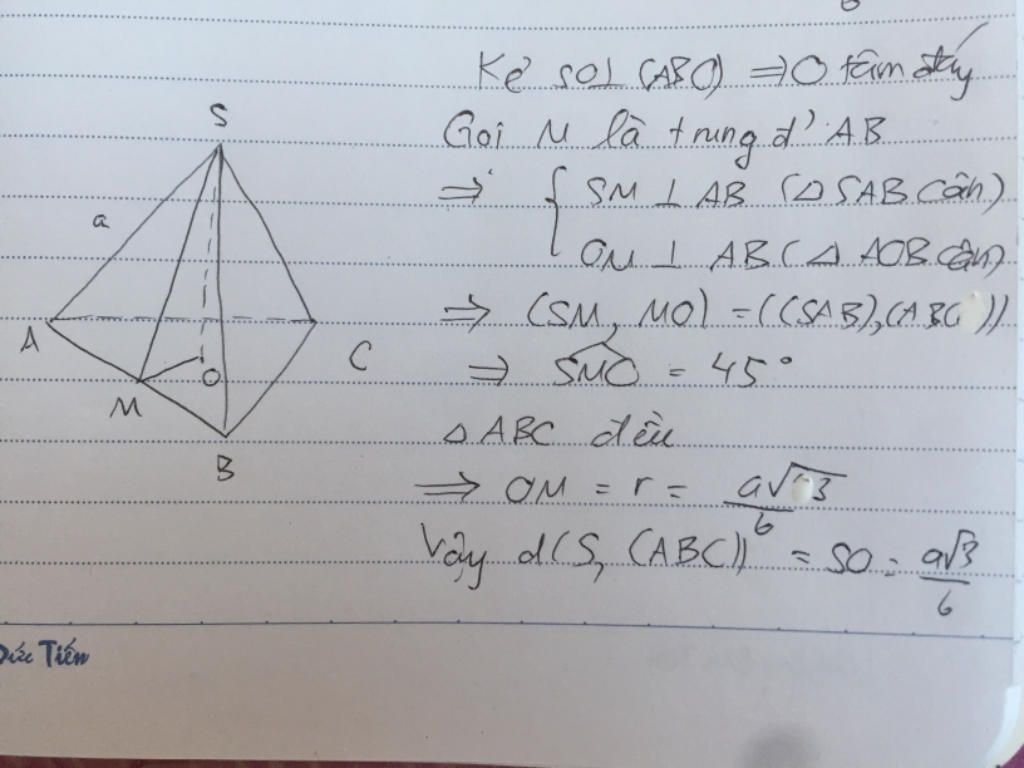 Kẻ SO⊥(ABC) ⇒ O tâm đáy
Gọi M là trung đ' AB
⇒ { SM ⊥ AB (△ SAB cân)
OM ⊥ AB (△ AOB cân)
⇒ (SM, MO) = ((SAB),(ABC))
⇒ SMO = 45°
△ ABC đều
⇒ OM = r = a√3/6
Vậy d(S, (ABC)) = SO = a√3/6
S
a
A
M
O
C
B
Đức Tiến